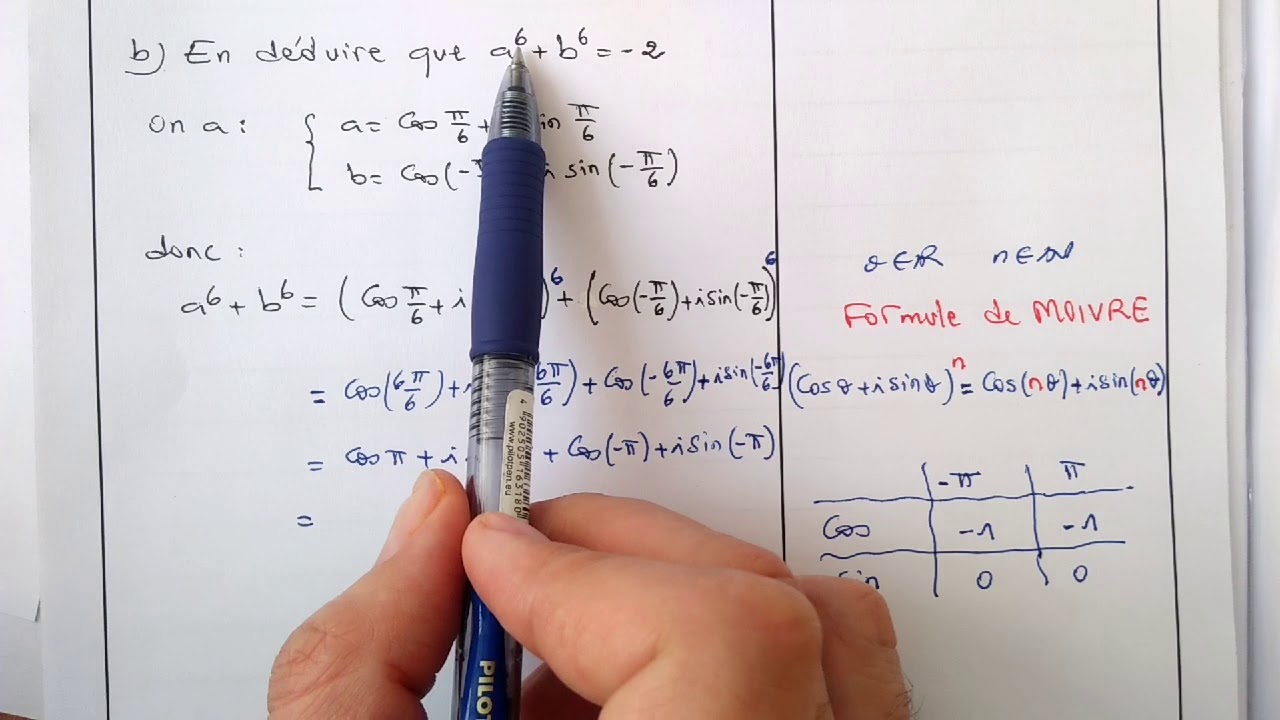 b) En déduire que a⁶ + b⁶ = -2
On a : { a = Cos π/6 + sin π/6
b = Cos(-π i sin(-π/6)
donc :
a⁶ + b⁶ = (Cos π/6 + i )⁶ + (Cos(-π/6) + i sin(-π/6))⁶
= Cos(6π/6) + i 6π/6) + Cos(-6π/6) + i sin(-6π/6)
= Cos π + i + Cos(-π) + i sin(-π)
=
θ ∈ ℝ n ∈ ℕ
Formule de MOIVRE
(Cos θ + i sin θ)ⁿ = Cos(nθ) + i sin(nθ)
-π π
Cos -1 -1
sin 0 0
4 902505 163180
www.pilotpen.eu
PILOT